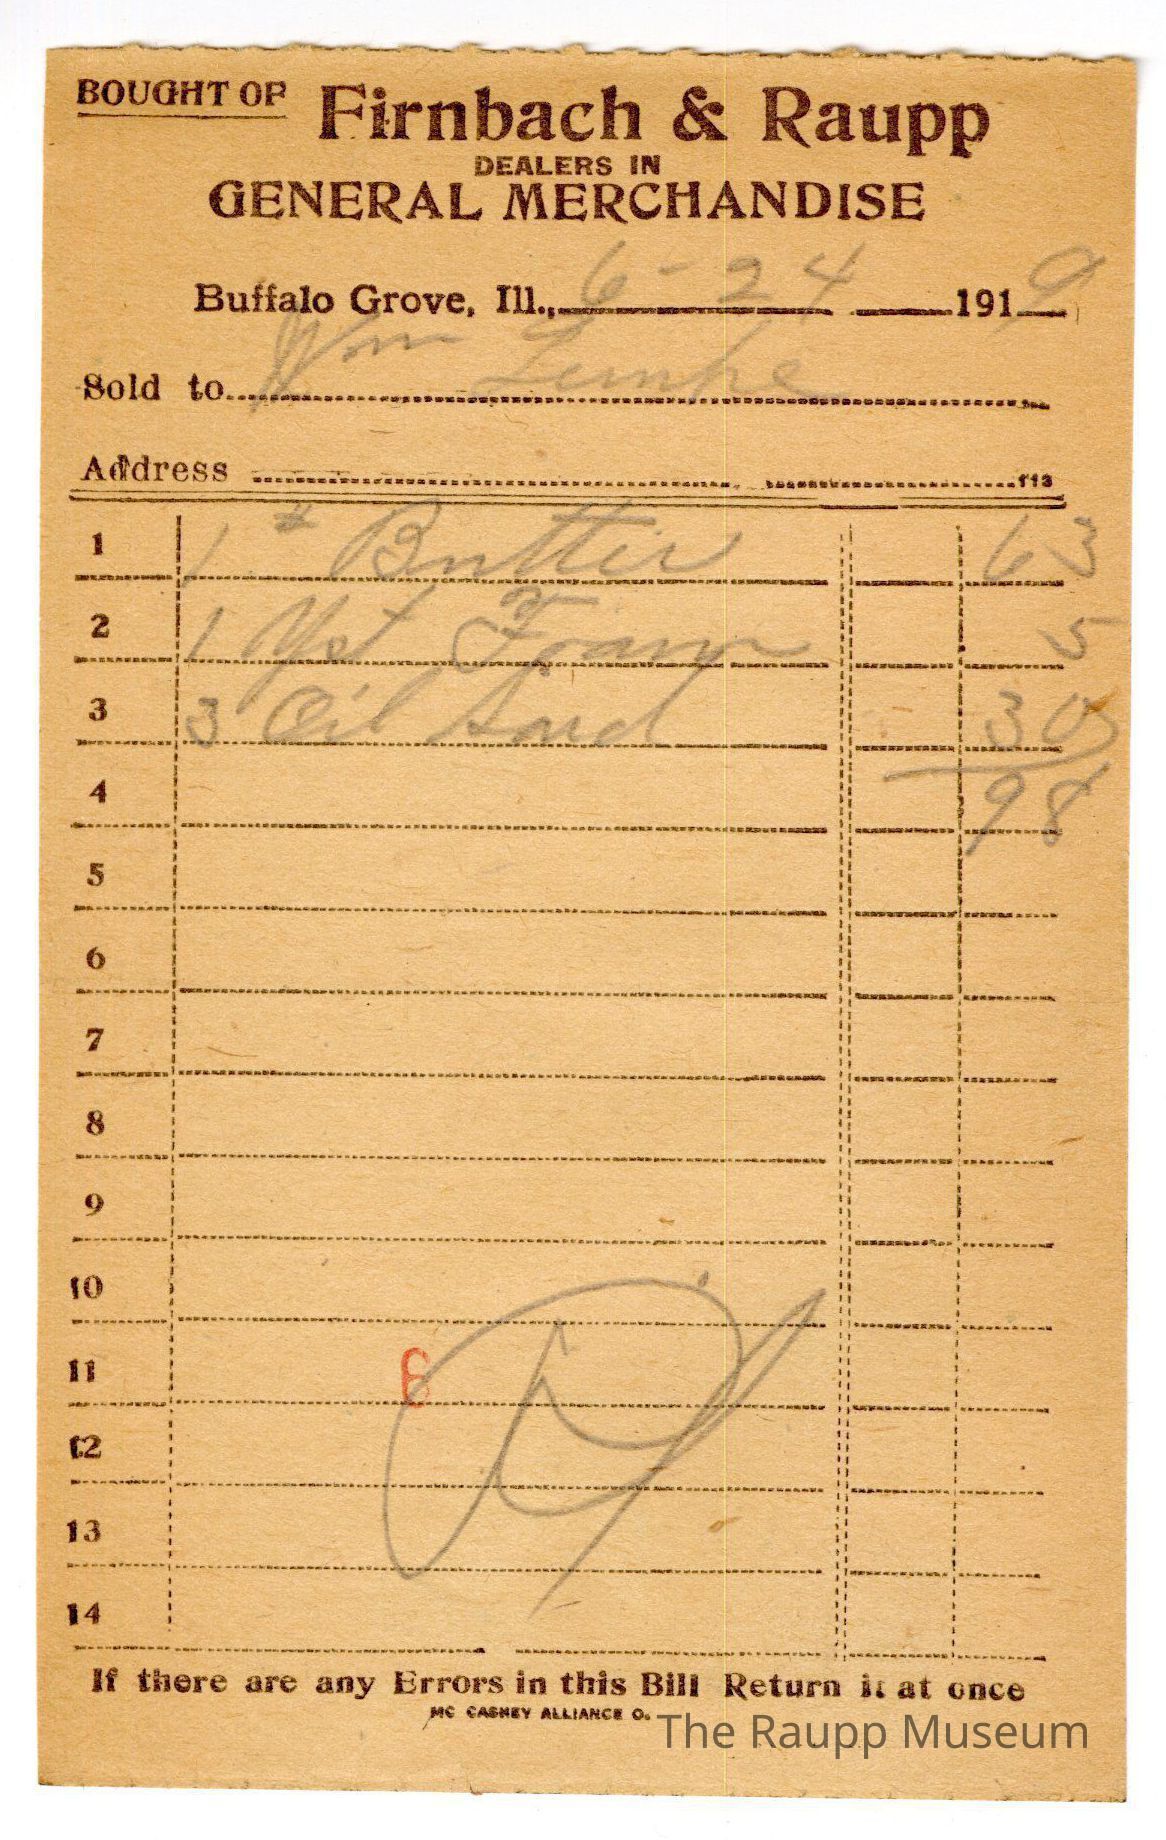 BOUGHT OF Firnbach & Raupp
DEALERS IN
GENERAL MERCHANDISE
Buffalo Grove, Ill., 6-24 1919
Sold to Wm Lempe
Address 113
1 1 # Butter 63
2 1 Yst Foam 5
3 3 Oil Sard 30
4 98
5
6
7
8
9
10
11 6
12
13
14
If there are any Errors in this Bill Return it at once
MC CASKEY ALLIANCE O.
The Raupp Museum